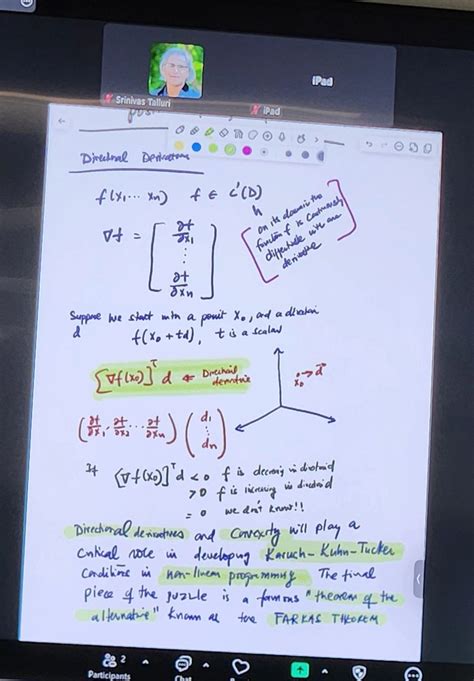 Srinivas Talluri
iPad
iPad
Directional Derivatives
f(x1 ... xn) f ∈ C'(D)
on its domain the
function f is continuously
differentiable with one
derivative
∇f = [ ∂f/∂x1 ⋮ ∂f/∂xn ]
Suppose we start with a point x0, and a direction
d f(x0 + td), t is a scalar
[∇f(x0)]^T d ← Directional
derivative
x0 → d
(∂f/∂x1, ∂f/∂x2 ... ∂f/∂xn) (d1 ⋮ dn)
If [∇f(x0)]^T d < 0 f is decreasing in direction d
> 0 f is increasing in direction d
= 0 we don't know!!
Directional derivatives and convexity will play a
critical role in developing Karush-Kuhn-Tucker
Conditions in non-linear programming. The final
piece of the puzzle is a famous "theorem of the
alternative" known as the FARKAS THEOREM
2
Participants
Chat